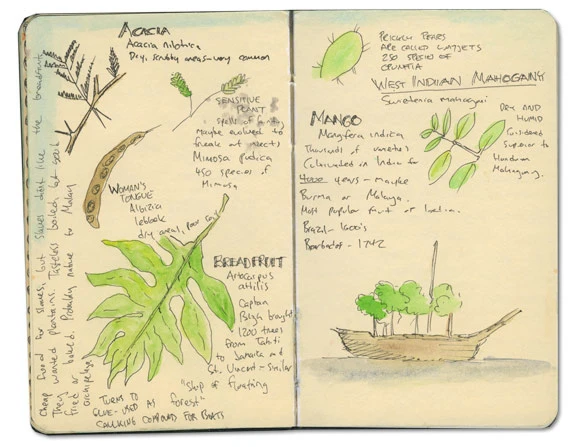 ACACIA
Acacia nilotica
Dry, scrubby areas - very common
SENSITIVE
PLANT
maybe evolved to
freak out insects
Mimosa pudica
450 species of
Mimosa
WOMAN'S
TONGUE
Albizia
lebbek
dry areas, poor
BREADFRUIT
Artocarpus
altilis
Captain
Bligh brought
1200 trees
from Tahiti
to Jamaica and
St. Vincent - similar
"ship of floating
forest"
TURNS TO
GLUE - USED AS
CAULKING COMPOUND FOR BOATS
Cheap food for slaves, but slaves didn't like the breadfruit.
They wanted plantains. Tasteless boiled, but good
fried or baked. Probably native to Malay
archipelago
PRICKLY PEARS
ARE CALLED
250 SPECIES OF
OPUNTIA
WEST INDIAN MAHOGANY
Swietenia mahogani
DRY AND
HUMID
Considered
superior to
Honduran
Mahogany.
MANGO
Mangifera indica
Thousands of varieties
Cultivated in India for
4000 years - maybe
Burma or Malaya.
Most popular fruit of India.
Brazil - 1600's
Barbados - 1742